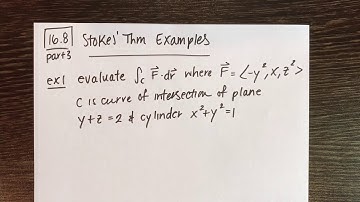 16.8 Stokes' Thm Examples
part 3
ex1 evaluate ∫_C F⃗·dr⃗ where F⃗ = <-y², x, z²>
C is curve of intersection of plane
y+z=2 & cylinder x²+y²=1